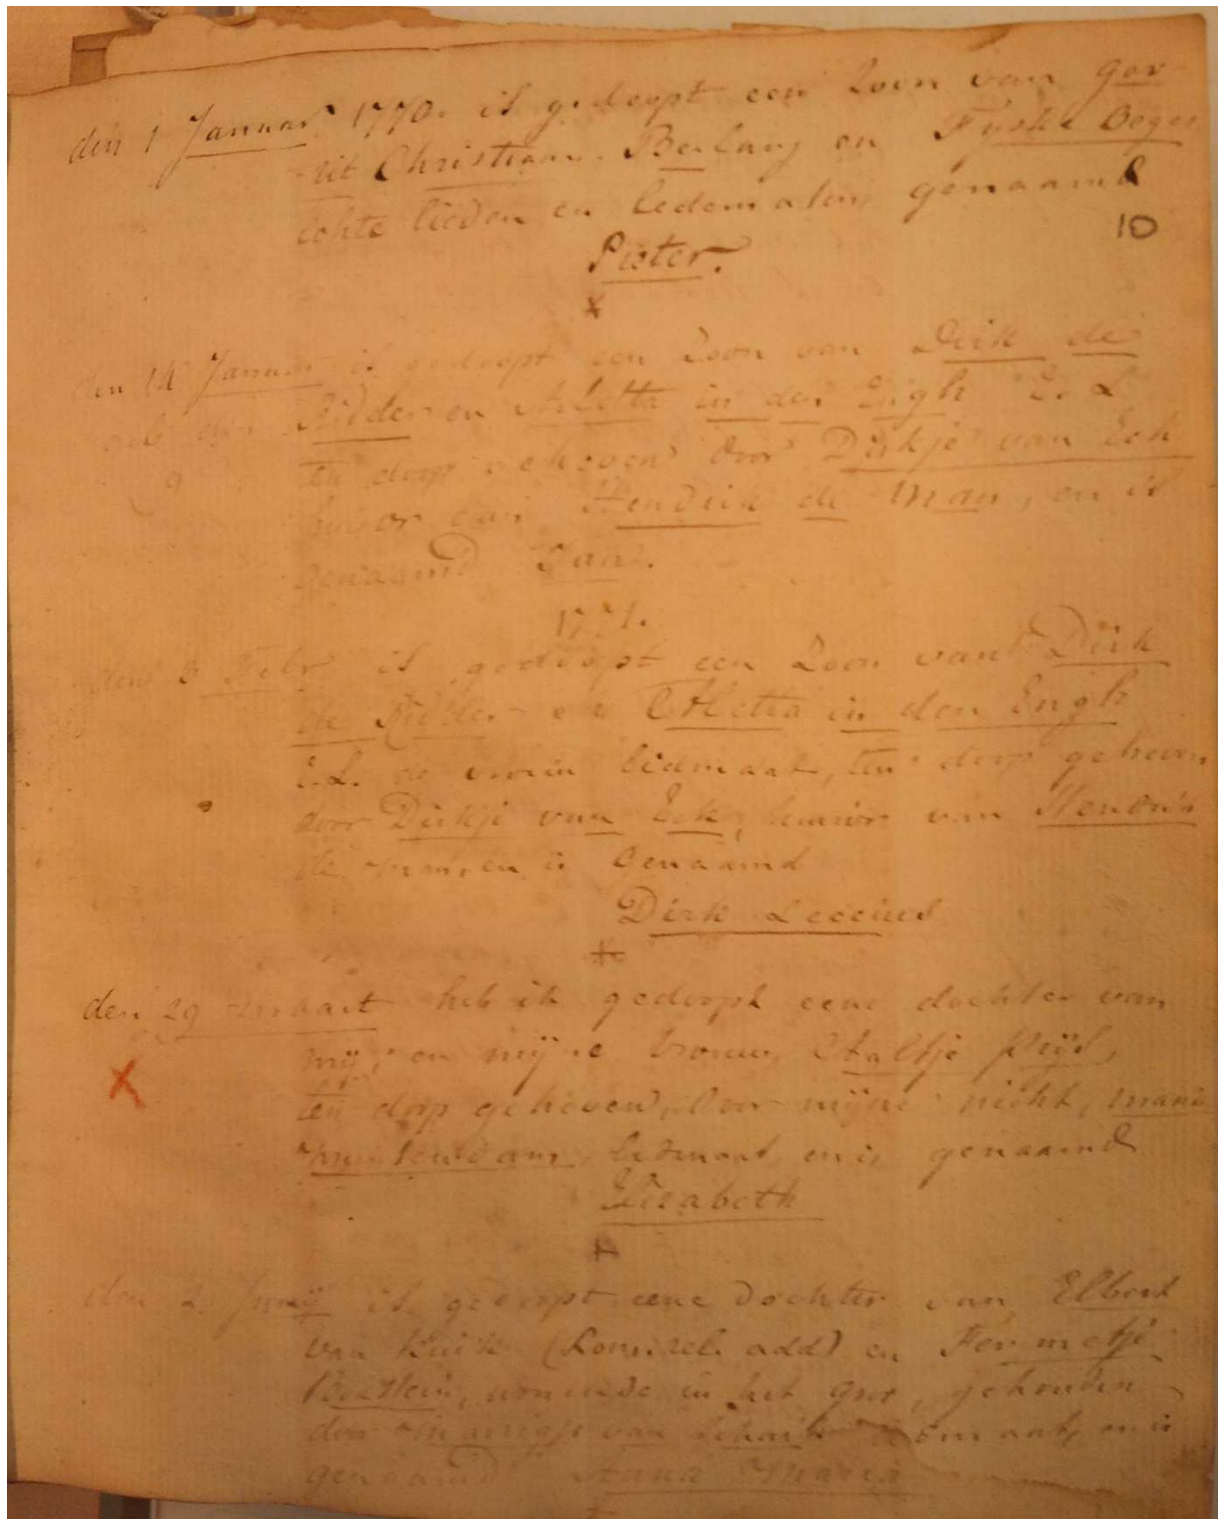 den 1 Januar 1770. is gedoopt een Zoon van Ger
rit Christiaan Berlang en Fyske Beges
echte lieden en ledematen, genaamd
10
Pieter.
x
den 14 Januar is gedoopt een Zoon van Dirk de
Ridder en Aletta in den Engh E. L
ten doop geheven door Dirkje van Eck
huisvr van Hendrik de Man, en is
genaamd
1771.
den 3 Febr is gedoopt een Zoon van Dirk
de Ridder en Aletta in den Engh
E.L. de vrouw lidmaat, ten doop geheven
door Dirkje van Eck, huisvr van Hendrik
de man, en is Genaamd
Dirk
+
den 29 maart heb ik gedoopt eene dochter van
mij, en mijne vrouw, Aaltje Prijs,
ten doop geheven, door mijne nicht, maria
lidmaat, en is genaamd
Elizabeth
+
den 2. Junij is gedoopt eene dochter van Elbert
van Kuik en Femmetje
woonende in het gehouden
door van Schaik lidmaat, en is
genaamd Anna Maria